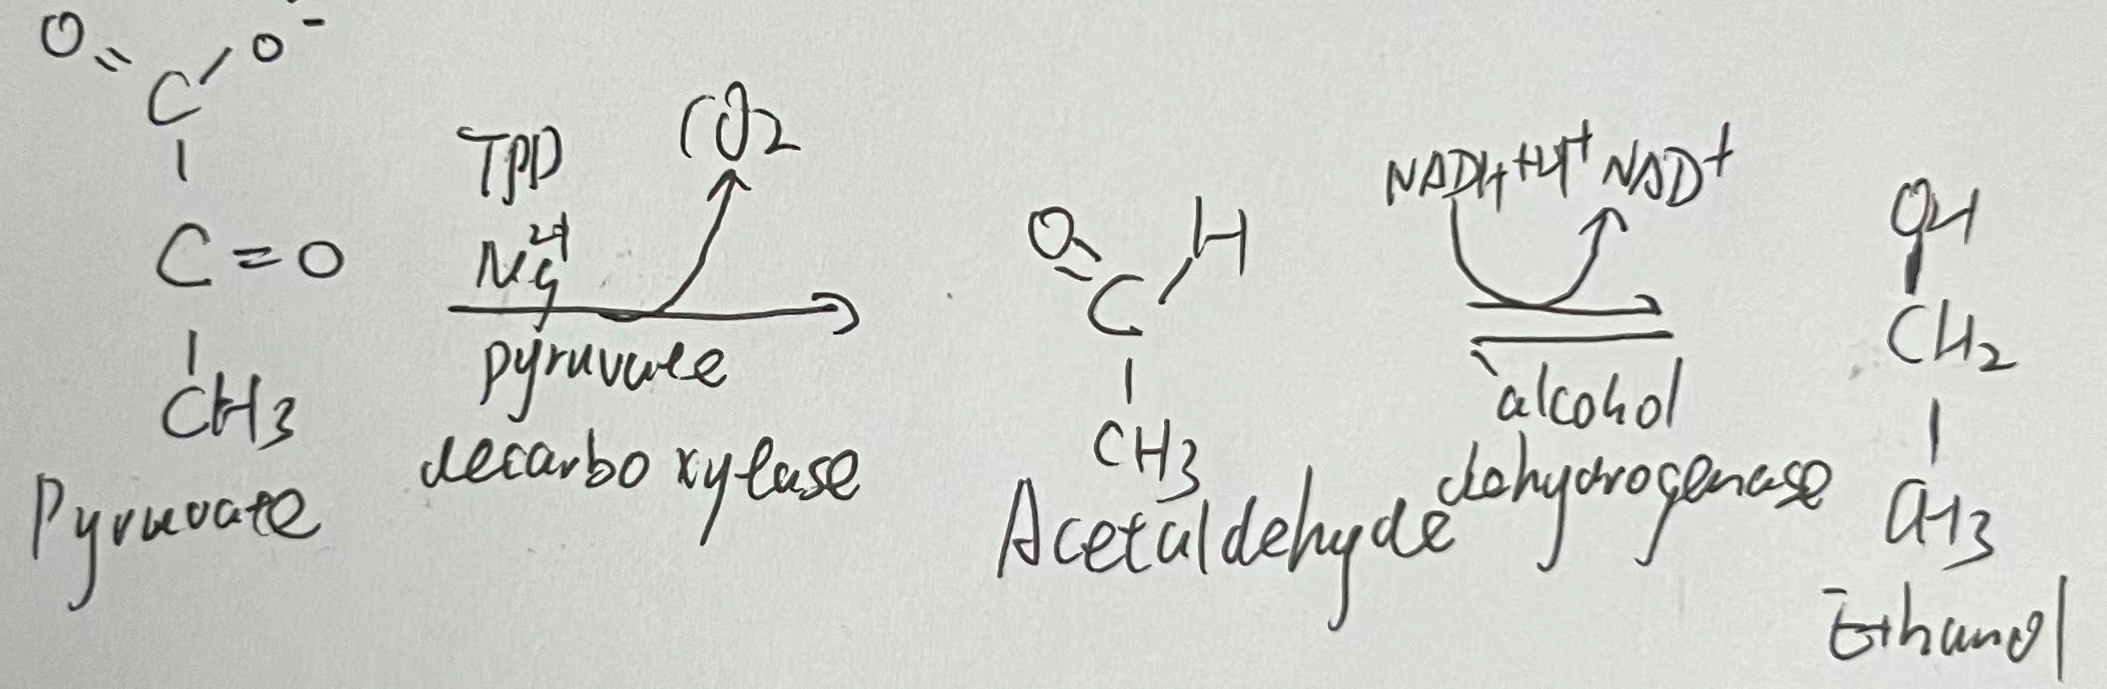 O=C-O⁻
C=O
CH3
Pyruvate
TPP
Mg2+
CO2
pyruvate
decarboxylase
O=C-H
CH3
Acetaldehyde
NADH+H+ NAD+
alcohol
dehydrogenase
OH
CH2
CH3
Ethanol